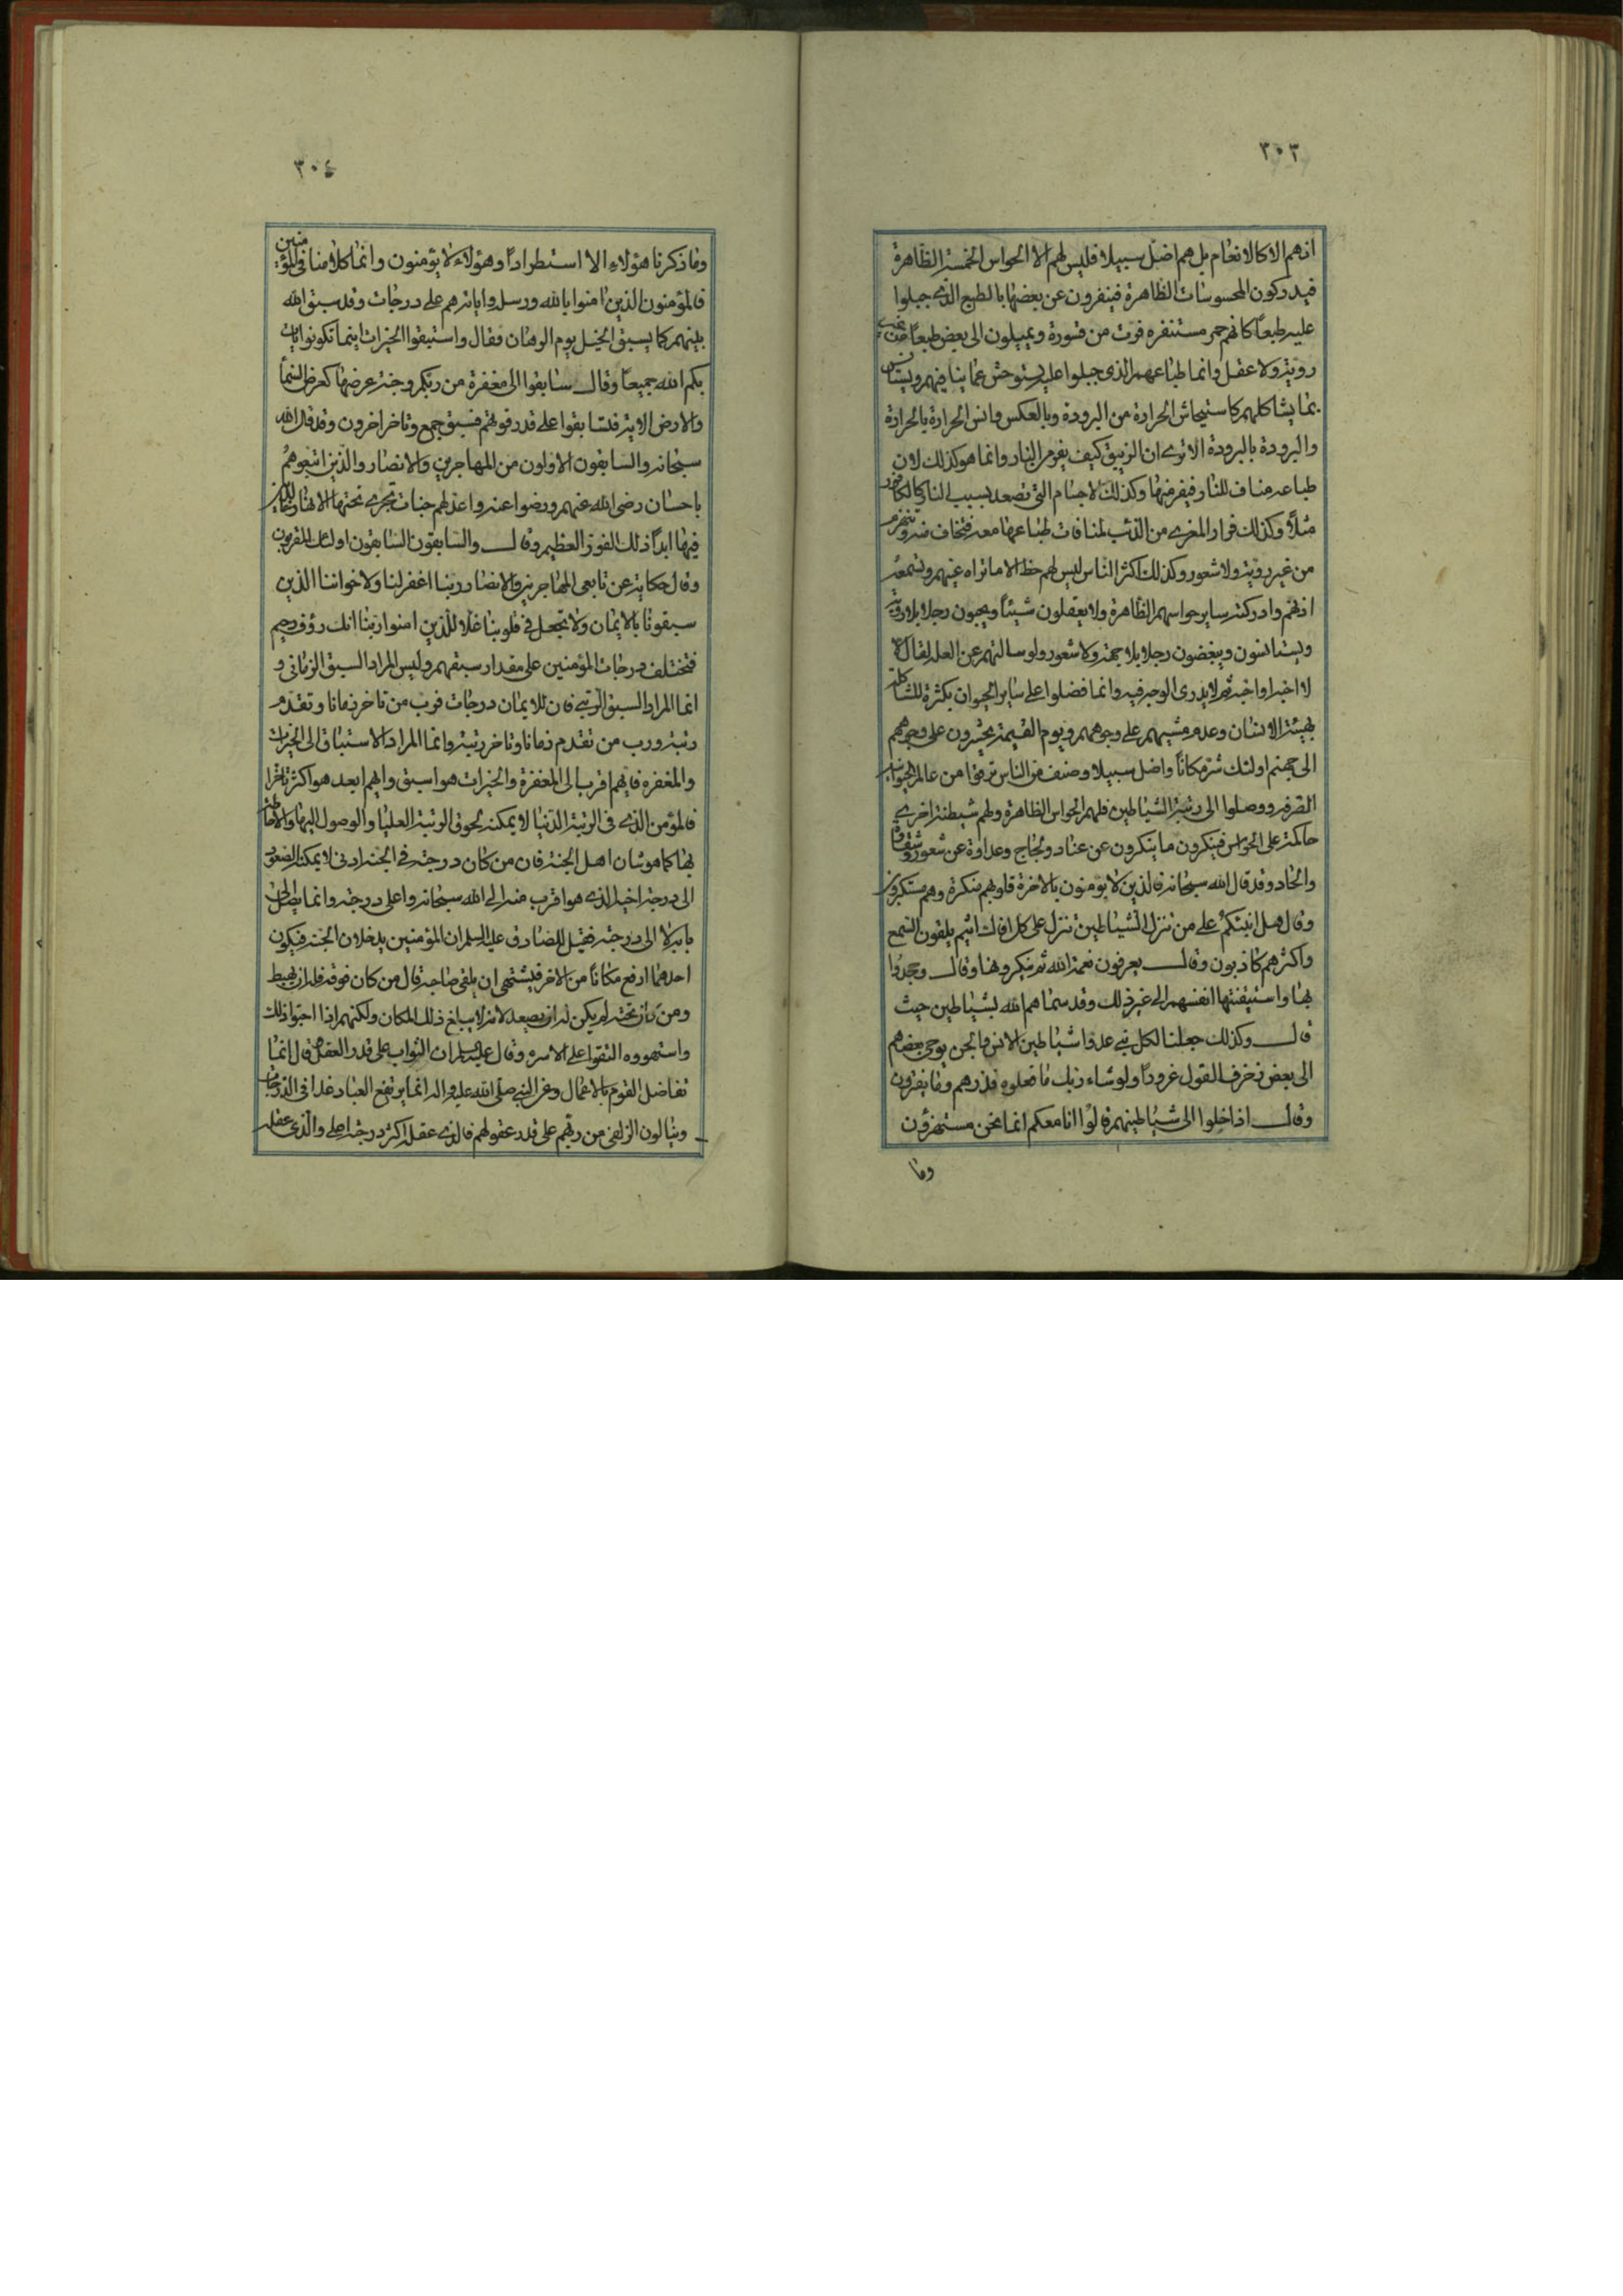 ٣٠٣
ان هم الا كالانعام بل هم اضل سبيلا فليس لهم الا الحواس الخمسة الظاهرة
فيدركون المحسوسات الظاهرة فينفرون عن بعضها بالطبع الذى جبلوا
عليه طبعاً كانهم حمر مستنفره فرت من قسورة ويميلون الى بعض طبعاً من غير
روية ولا عقل وانما طباعهم الذى جبلوا عليه يستوحش عما ينافيهم ويستانس
بما يشاكلهم كاستيحاش الحرارة من البرودة وبالعكس وانس الحرارة بالحرارة
والبرودة بالبرودة الا ترى ان الزيبق كيف يفر من النار وانما هو كذلك لان
طباعه مناف للنار فيفر منها وكذلك الاجسام التى تصعد بسبب النار كالكافور
مثلاً وكذلك فرار المعزى من الذئب لمنافات طباعها معه فتخاف منه وتنهزم
من غير روية ولا شعور وكذلك اكثر الناس ليس لهم حظ الا ما تراه عينهم وتسمعه
اذنهم وادركته ساير حواسهم الظاهرة ولا يعقلون شيئاً ويحبون رجلا بلا روية
ويستانسون ويبغضون رجلا بلا جهة ولا شعور ولو سالتهم عن العلة لقال
لا اخير واخبه ثم لا يدرى الوجه فيه وانما فضلوا على ساير الحيوان بكثرة المشاكلة
بهيئة الانسان وعدم مشيهم على وجوههم ويوم القيمة يحشرون على وجوههم
الى جهنم اولئك شر مكاناً واضل سبيلا وصنف من الناس ترقوا من عالم الحيوانية
الصرفه ووصلوا الى رتبة الشياطين فلهم الحواس الظاهرة ولهم شيطنة اخرى
حاكمة على الحواس فينكرون ما ينكرون عن عناد ولجاج وعداوة عن شعور وشقاق
والحاد وقد قال الله سبحانه فالذين لا يؤمنون بالاخرة قلوبهم منكرة وهم مستكبرون
وقال هل انبئكم على من تنزل الشياطين تنزل على كل افاك اثيم يلقون السمع
واكثرهم كاذبون وقال يعرفون نعمة الله ثم ينكرونها وقال وجحدوا
بها واستيقنتها انفسهم الى غير ذلك وقد سماهم الله بشياطين حيث
قال وكذلك جعلنا لكل نبى عدوا شياطين الانس والجن يوحى بعضهم
الى بعض زخرف القول غروراً ولو شاء ربك ما فعلوه فذرهم وما يفترون
وقال اذا خلوا الى شياطينهم قالوا انا معكم انما نحن مستهزؤن
وما
٣٠٤
وما ذكرنا هؤلاء الا استطراداً وهؤلاء لا يؤمنون وانما كلامنا فى المؤمنين
فالمؤمنون الذين امنوا بالله ورسله واياته هم على درجات وقد سبق الله
بينهم كما يسبق الخيل يوم الرهان فقال واستبقوا الخيرات اينما تكونوا يات
بكم الله جميعاً وقال سابقوا الى مغفرة من ربكم وجنة عرضها كعرض السماء
والارض الاية فتسابقوا على قدر قوتهم فسبق جمع وتاخر اخرون وقد قال الله
سبحانه والسابقون الاولون من المهاجرين والانصار والذين اتبعوهم
باحسان رضى الله عنهم ورضوا عنه واعد لهم جنات تجرى تحتها الانهار خالدين
فيها ابداً ذلك الفوز العظيم وقال والسابقون السابقون اولئك المقربون
وقال حكاية عن تابعى المهاجرين والانصار ربنا اغفر لنا ولاخواننا الذين
سبقونا بالايمان ولا تجعل فى قلوبنا غلاً للذين امنوا ربنا انك رؤف رحيم
فتختلف درجات المؤمنين على مقدار سبقهم وليس المراد السبق الزمانى و
انما المراد السبق الرتبى فان للايمان درجات فرب من تاخر زمانا وتقدم
رتبة ورب من تقدم زمانا وتاخر رتبة وانما المراد الاستباق الى الخيرات
والمغفره فايهم اقرب الى المغفرة والخيرات هو اسبق وايهم ابعد هو اكثر تاخرا
فالمؤمن الذى فى الرتبة الدنيا لا يمكنه لحوق الرتبة العليا والوصول اليها والاحاطة
بها كما هو شان اهل الجنة فان من كان درجته فى الجنة ادنى لا يمكنه الصعود
الى درجة اخيه الذى هو اقرب منه الى الله سبحانه واعلى درجة وانما
الى درجته فقيل للصادق عليه السلم ان المؤمنين يدخلان الجنة فيكون
احدهما ارفع مكاناً من الاخر فيشتهى ان يلقى صاحبه قال من كان فوقه فله ان يهبط
ومن كان تحته لم يكن له ان يصعد لانه لا يبلغ ذلك المكان ولكنهم اذا احبوا ذلك
واستهووه التقوا على الاسره وقال عليه السلم ان الثواب على قدر العقل وقال انما
تفاضل القوم بالاعمال وعن النبى صلى الله عليه واله انما يرتفع العباد غدا فى الدرجات
وينالون الزلفى من ربهم على قدر عقولهم فالذى عقله اكثر درجته اعلى والذى عقله